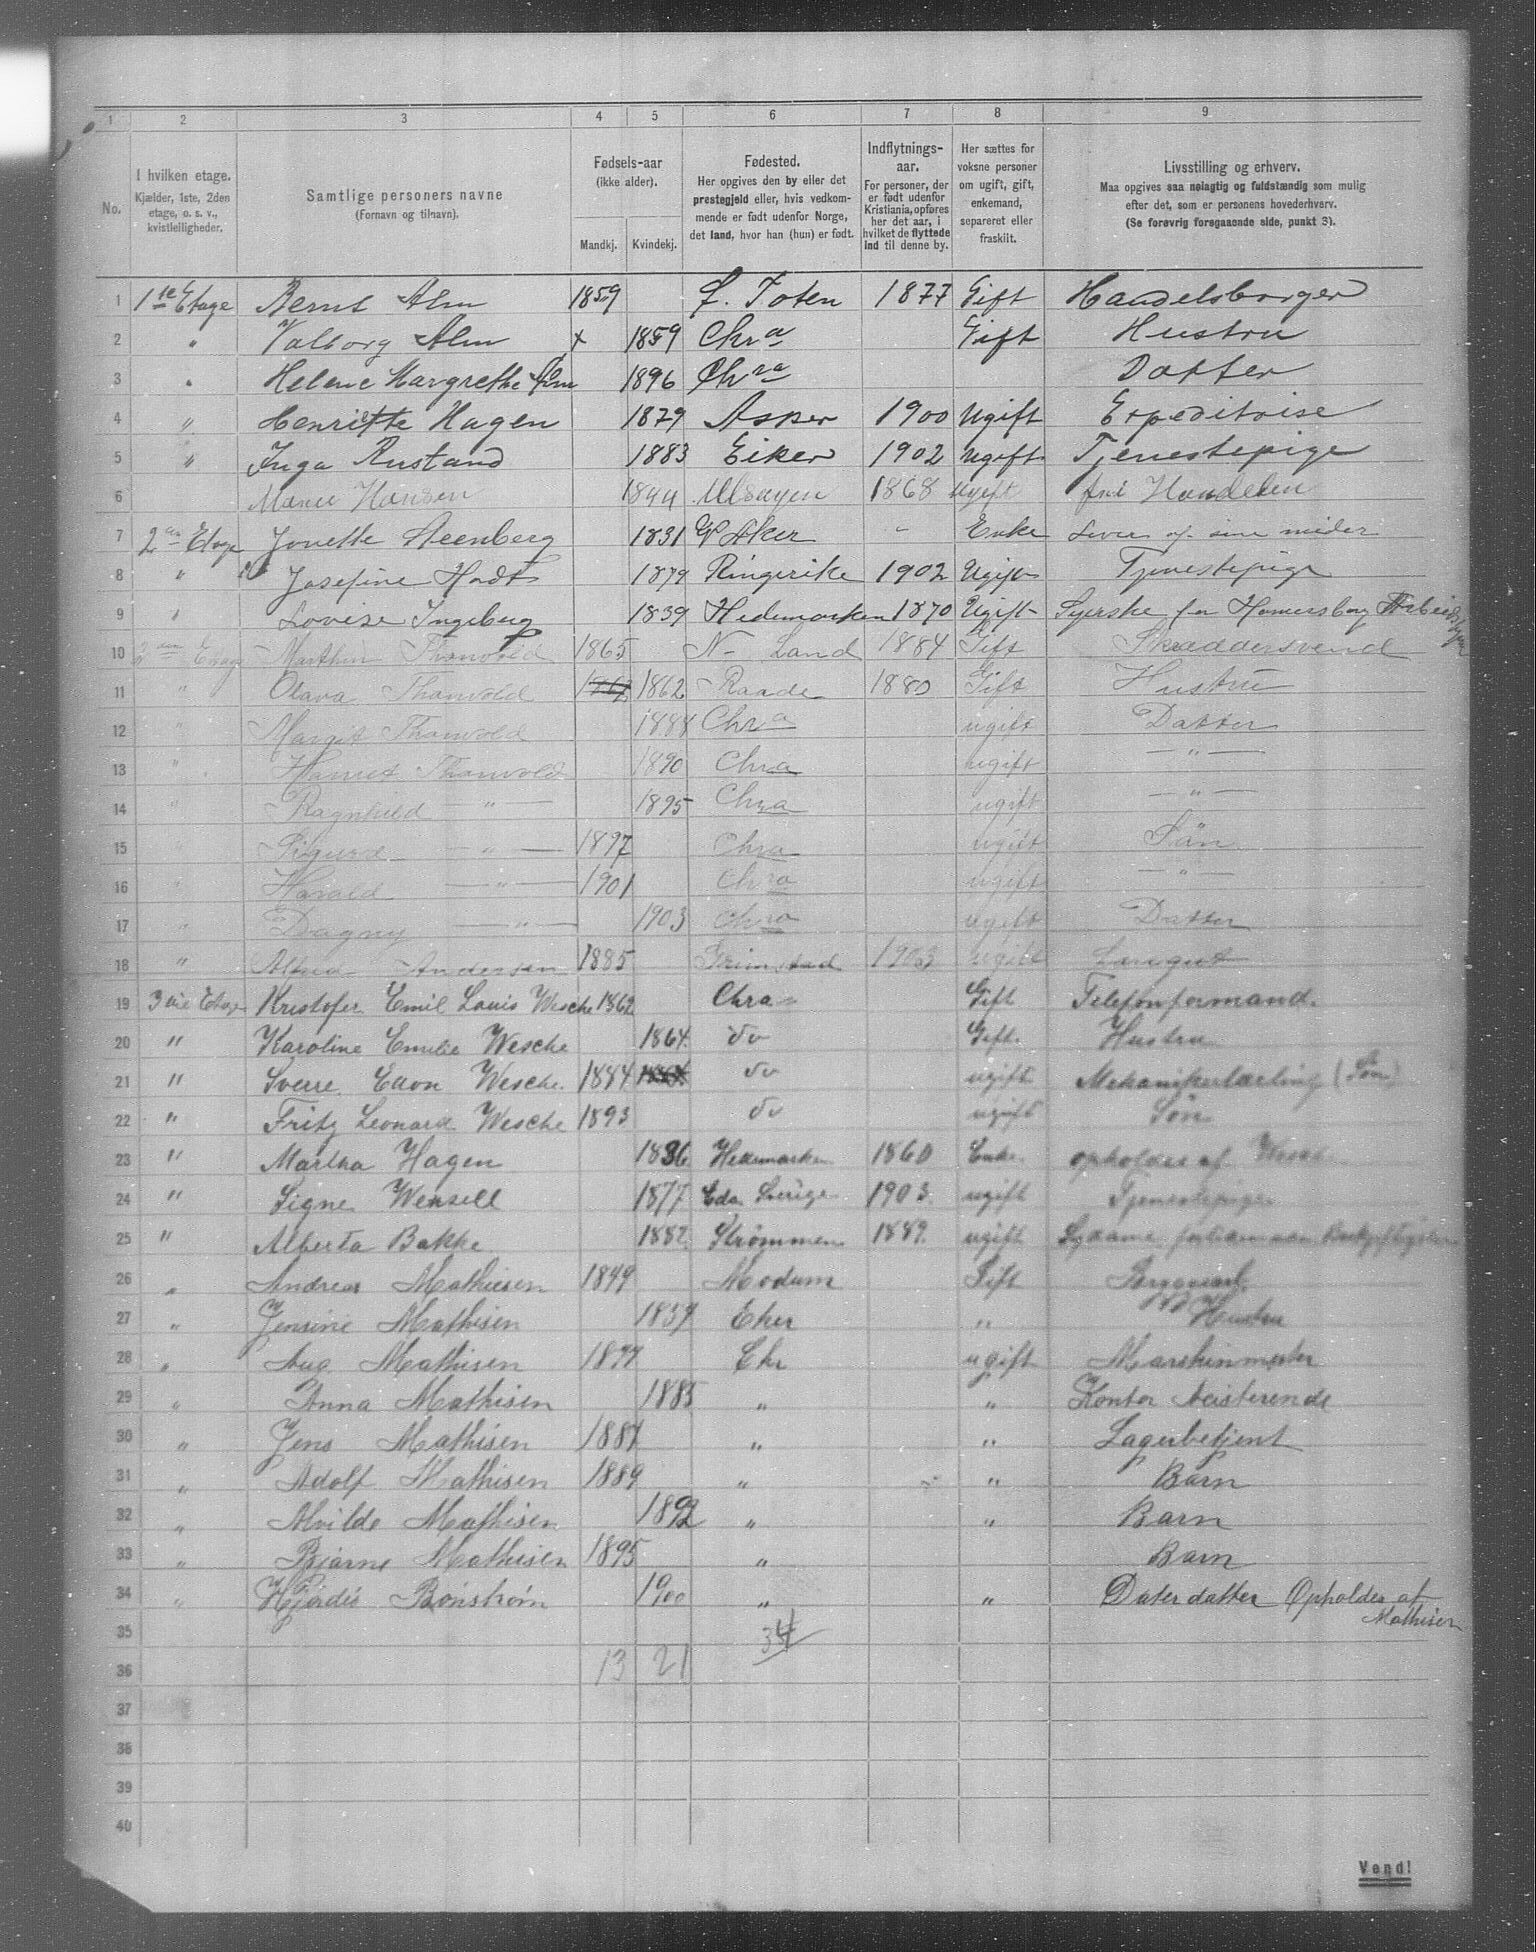 1 2 3 4 5 6 7 8 9
No.
I hvilken etage.
Kjælder, 1ste, 2den
etage, o. s. v.,
kvistleiligheder.
Samtlige personers navne
(Fornavn og tilnavn).
Fødsels-aar
(ikke alder).
Mandkj. Kvindekj.
Fødested.
Her opgives den by eller det
prestegjeld eller, hvis vedkom-
mende er født udenfor Norge,
det land, hvor han (hun) er født.
Indflytnings-
aar.
For personer, der
er født udenfor
Kristiania, opføres
her det aar, i
hvilket de flyttede
ind til denne by.
Her sættes for
voksne personer
om ugift, gift,
enkemand,
separeret eller
fraskilt.
Livsstilling og erhverv.
Maa opgives saa nøiagtig og fuldstændig som mulig
efter det, som er personens hovederhverv.
(Se forøvrig foregaaende side, punkt 3).
1 1ste Etage Bernt Alm 1859 Ø. Toten 1877 Gift Handelsborger
2 " Valborg Alm x 1859 Chra Gift Hustru
3 " Helene Margrethe Alm 1896 Chra Datter
4 " Henriette Hagen 1879 Asker 1900 Ugift Expeditrise
5 " Inga Rustand 1883 Eiker 1902 Ugift Tjenestepige
6 Maren Hansen 1844 1868 Ugift Handelen
7 2den Etage Jonette Steenberg 1831 V Aker " Enke Lever af sine midler
8 " Josefine Hodt 1879 Ringerike 1902 Ugift Tjenestepige
9 " Lovise Ingeberg 1839 Hedemarken 1870 Ugift Syerske for
10 2den Etage Marthin Thorvold 1865 N- Land 1884 Gift Skræddersvend
11 " Olava Thorvold 1862 1862 Raade 1880 Gift Hustru
12 " Margit Thorvold 1888 Chra ugift Datter
13 " Harriet Thorvold 1890 Chra ugift — " —
14 " Ragnhild — " — 1895 Chra ugift — " —
15 " Sigurd — " — 1897 Chra ugift Søn
16 " Harald — " — 1901 Chra ugift — " —
17 " Dagny — " — 1903 Chra ugift Datter
18 " Alfred Andersen 1885 Grimstad 1903 ugift
19 3die Etage Kristofer Emil Louis Wesche 1862 Chra Gift Telefonformand.
20 " Karoline Emilie Wesche 1864. do Gift. Hustru
21 " Sverre Edvon Wesche. 1884 do ugift Mekanikerlærling (Søn)
22 " Fritz Leonard Wesche 1893 do ugift Søn
23 " Martha Hagen 1836 Hedemarken 1860 Enke opholdes af Wesche
24 " Signe Wensell 1877 Eda Sverige 1903. ugift Tjenestepige
25 " Alberta Bakke 1882. Strømmen 1889. ugift Sydame
26 " Andreas Mathiesen 1849 Modum Gift
27 " Jensine Mathisen 1857 Eker " Hustru
28 " Aug Mathisen 1877 Chr ugift Marskinmester
29 " Anna Mathisen 1885 " " Kontor Asisterende
30 " Jens Mathisen 1887 " " Lagerbetjent
31 " Adolf Mathisen 1889 " " Barn
32 " Alvilde Mathisen 1892 " " Barn
33 " Bjarne Mathisen 1895 " Barn
34 " Hjørdis Bønstrøm 1900 " " Daterdatter Opholdes af
Mathisen
35 34
36 13 21
37
38
39
40
Vend!